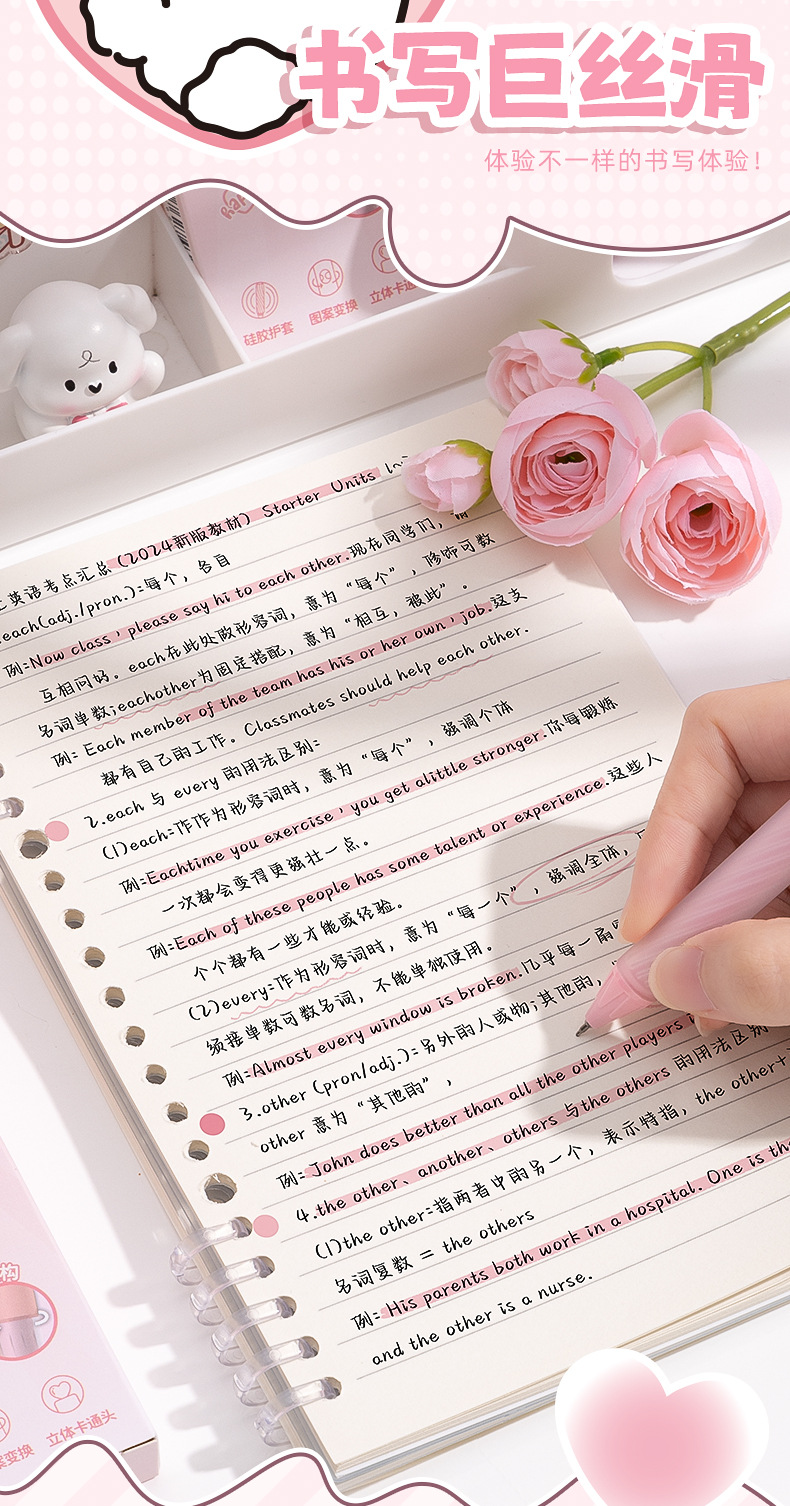 书写巨丝滑
体验不一样的书写体验！
硅胶护套 图案变换 立体卡通
英语考点汇总（2024新版教材）Starter Units
each(adj./pron.)=每个，各自
例=Now class，please say hi to each other.现在同学们，
互相问好。each在此处做形容词，意为“每个”，修饰可数
名词单数；eachother为固定搭配，意为“相互，彼此”。
例= Each member of the team has his or her own，job.这支
都有自己的工作。Classmates should help each other.
2.each 与 every 的用法区别=
(1)each=作作为形容词时，意为“每个”，强调个体
例=Eachtime you exercise，you get alittle stronger.你每锻炼
一次都会变得更强壮一点。
例=Each of these people has some talent or experience.这些人
个个都有一些才能或经验。
(2)every=作为形容词时，意为“每一个”，强调全体，
须接单数可数名词，不能单独使用。
例=Almost every window is broken.几乎每一扇
3.other (pron/adj.)=另外的人或物;其他的，
other 意为“其他的”，
例= John does better than all the other players
4.the other、another、others 与the others 的用法区别
(1)the other=指两者中的另一个，表示特指，the other+
名词复数 = the others
例= His parents both work in a hospital. One is the
and the other is a nurse.
构
案变换 立体卡通头